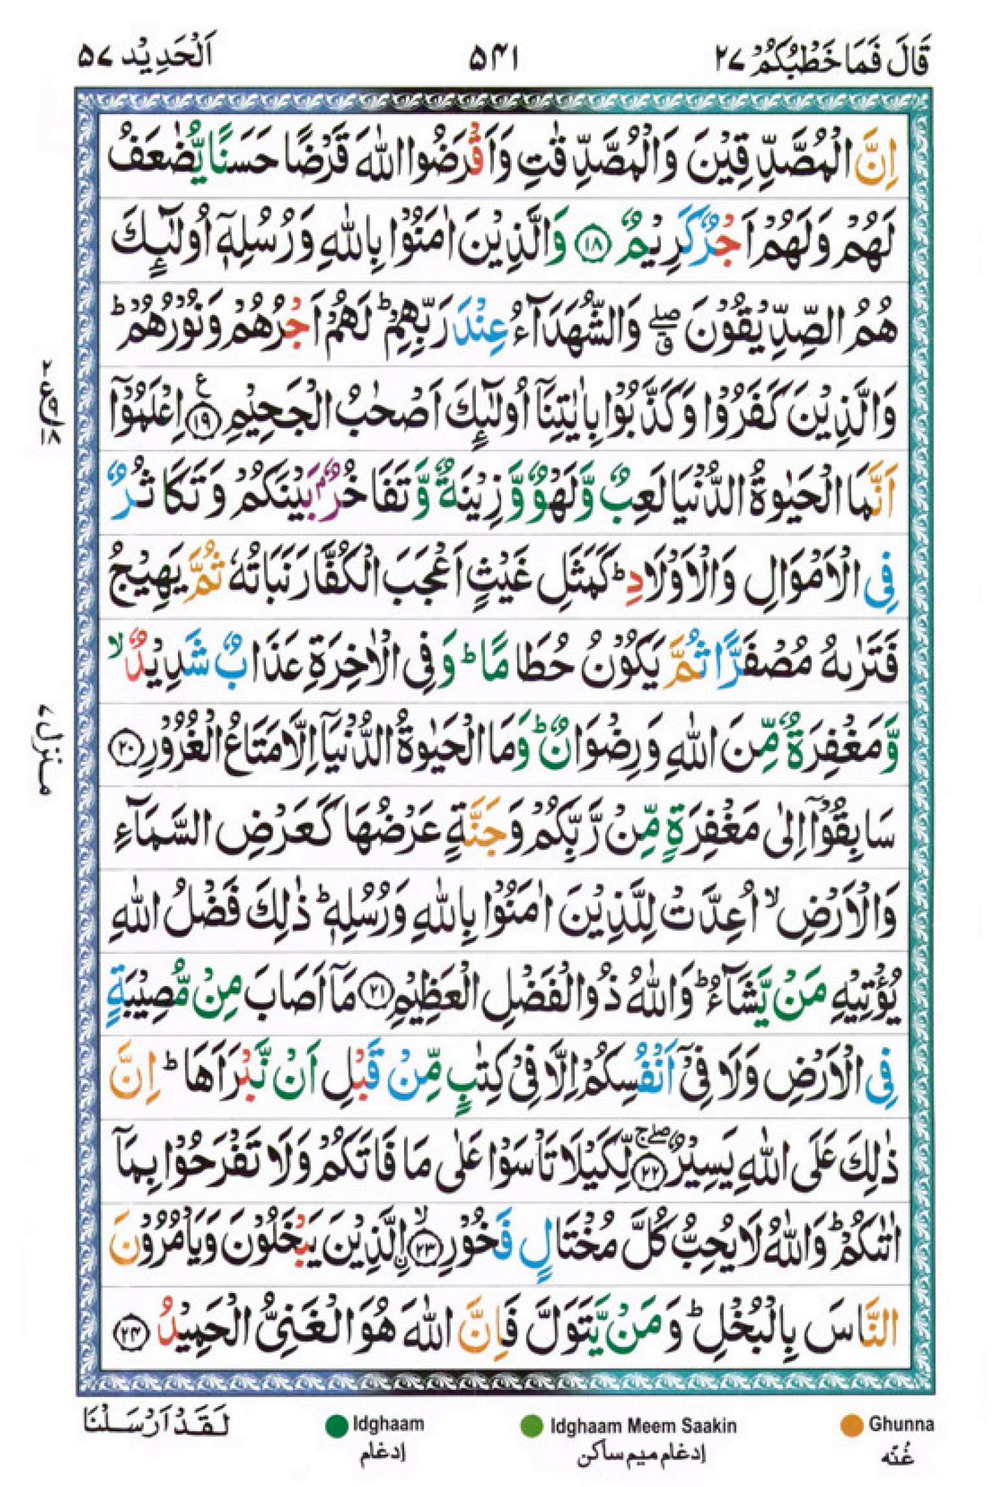 قَالَ فَمَا خَطْبُكُمْ ٢٧
٥٤١
اَلْحَدِيْد ٥٧
اِنَّ الْمُصَّدِّقِيْنَ وَالْمُصَّدِّقٰتِ وَاَقْرَضُوا اللّٰهَ قَرْضًا حَسَنًا يُّضٰعَفُ
لَهُمْ وَلَهُمْ اَجْرٌ كَرِيْمٌ ﴿١٨﴾ وَالَّذِيْنَ اٰمَنُوْا بِاللّٰهِ وَرُسُلِهٖٓ اُولٰٓئِكَ
هُمُ الصِّدِّيْقُوْنَ ۖ ق وَالشُّهَدَآءُ عِنْدَ رَبِّهِمْ ؕ لَهُمْ اَجْرُهُمْ وَنُوْرُهُمْ ؕ
وَالَّذِيْنَ كَفَرُوْا وَكَذَّبُوْا بِاٰيٰتِنَآ اُولٰٓئِكَ اَصْحٰبُ الْجَحِيْمِ ﴿١٩﴾ ع اِعْلَمُوْٓا
اَنَّمَا الْحَيٰوةُ الدُّنْيَا لَعِبٌ وَّلَهْوٌ وَّزِيْنَةٌ وَّتَفَاخُرٌۢ بَيْنَكُمْ وَتَكَاثُرٌ
فِى الْاَمْوَالِ وَالْاَوْلَادِ ؕ كَمَثَلِ غَيْثٍ اَعْجَبَ الْكُفَّارَ نَبَاتُهٗ ثُمَّ يَهِيْجُ
فَتَرٰىهُ مُصْفَرًّا ثُمَّ يَكُوْنُ حُطَامًا ؕ وَفِى الْاٰخِرَةِ عَذَابٌ شَدِيْدٌ ۙ
وَّمَغْفِرَةٌ مِّنَ اللّٰهِ وَرِضْوَانٌ ؕ وَمَا الْحَيٰوةُ الدُّنْيَآ اِلَّا مَتَاعُ الْغُرُوْرِ ﴿٢٠﴾
سَابِقُوْٓا اِلٰى مَغْفِرَةٍ مِّنْ رَّبِّكُمْ وَجَنَّةٍ عَرْضُهَا كَعَرْضِ السَّمَآءِ
وَالْاَرْضِ ۙ اُعِدَّتْ لِلَّذِيْنَ اٰمَنُوْا بِاللّٰهِ وَرُسُلِهٖ ؕ ذٰلِكَ فَضْلُ اللّٰهِ
يُؤْتِيْهِ مَنْ يَّشَآءُ ؕ وَاللّٰهُ ذُو الْفَضْلِ الْعَظِيْمِ ﴿٢١﴾ مَآ اَصَابَ مِنْ مُّصِيْبَةٍ
فِى الْاَرْضِ وَلَا فِىْٓ اَنْفُسِكُمْ اِلَّا فِىْ كِتٰبٍ مِّنْ قَبْلِ اَنْ نَّبْرَاَهَا ؕ اِنَّ
ذٰلِكَ عَلَى اللّٰهِ يَسِيْرٌ ﴿٢٢﴾ ۖۚ لِّكَيْلَا تَاْسَوْا عَلٰى مَا فَاتَكُمْ وَلَا تَفْرَحُوْا بِمَآ
اٰتٰىكُمْ ؕ وَاللّٰهُ لَا يُحِبُّ كُلَّ مُخْتَالٍ فَخُوْرِ ﴿٢٣﴾ ۙ اِۨلَّذِيْنَ يَبْخَلُوْنَ وَيَاْمُرُوْنَ
النَّاسَ بِالْبُخْلِ ؕ وَمَنْ يَّتَوَلَّ فَاِنَّ اللّٰهَ هُوَ الْغَنِىُّ الْحَمِيْدُ ﴿٢٤﴾
٢
ع ٩
١٨
منزل ٧
لَقَدْ اَرْسَلْنَا
Idghaam
اِدغام
Idghaam Meem Saakin
اِدغام میم ساکن
Ghunna
غُنّه